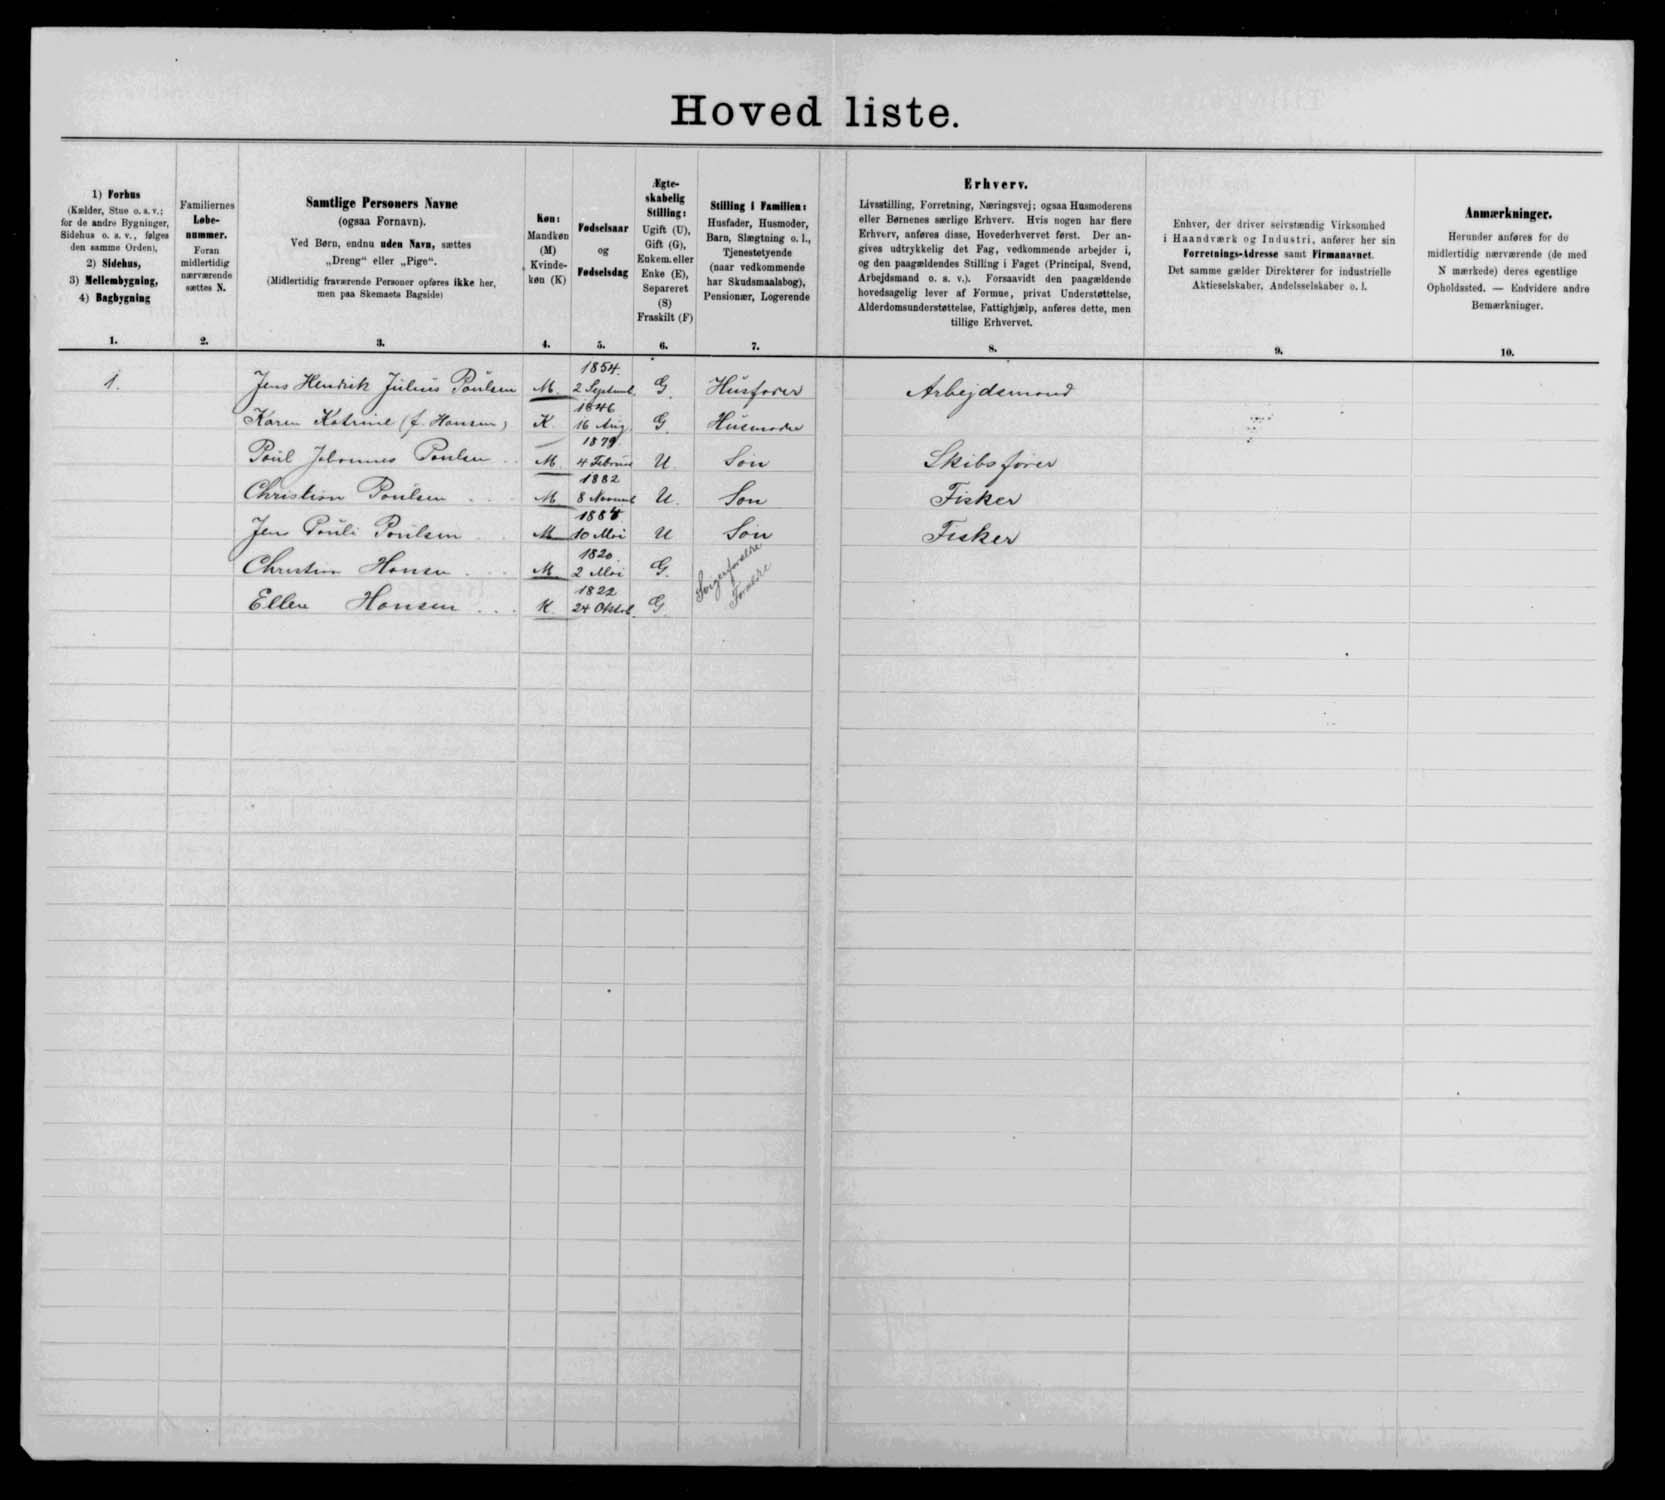 Hoved liste.
1) Forhus
(Kælder, Stue o. s. v.;
for de andre Bygninger,
Sidehus o. s. v., følges
den samme Orden),
2) Sidehus,
3) Mellembygning,
4) Bagbygning
1.
Familiernes
Løbe-
nummer.
Foran
midlertidig
nærværende
sættes N.
2.
Samtlige Personers Navne
(ogsaa Fornavn).
Ved Børn, endnu uden Navn, sættes
„Dreng“ eller „Pige“.
(Midlertidig fraværende Personer opføres ikke her,
men paa Skemaets Bagside)
3.
Køn:
Mandkøn
(M)
Kvinde-
køn (K)
4.
Fødselsaar
og
Fødselsdag
5.
Ægte-
skabelig
Stilling:
Ugift (U),
Gift (G),
Enkem. eller
Enke (E),
Separeret
(S)
Fraskilt (F)
6.
Stilling i Familien:
Husfader, Husmoder,
Barn, Slægtning o. l.,
Tjenestetyende
(naar vedkommende
har Skudsmaalsbog),
Pensionær, Logerende
7.
Erhverv.
Livsstilling, Forretning, Næringsvej; ogsaa Husmoderens
eller Børnenes særlige Erhverv. Hvis nogen har flere
Erhverv, anføres disse, Hovederhvervet først. Der an-
gives udtrykkelig det Fag, vedkommende arbejder i,
og den paagældendes Stilling i Faget (Principal, Svend,
Arbejdsmand o. s. v.). Forsaavidt den paagældende
hovedsagelig lever af Formue, privat Understøttelse,
Alderdomsunderstøttelse, Fattighjælp, anføres dette, men
tillige Erhvervet.
8.
Enhver, der driver selvstændig Virksomhed
i Haandværk og Industri, anfører her sin
Forretnings-Adresse samt Firmanavnet.
Det samme gælder Direktører for industrielle
Aktieselskaber, Andelsselskaber o. l.
9.
Anmærkninger.
Herunder anføres for de
midlertidig nærværende (de med
N mærkede) deres egentlige
Opholdssted. — Endvidere andre
Bemærkninger.
10.
1. Jens Hendrik Julius Poulsen M. 1854. 2 Septemb. G. Husfader Arbejdsmand
Karen Katrine (f. Hansen) K. 1846 16 Aug. G. Husmoder
Poul Johannes Poulsen M. 1879. 4 Februar U. Søn Skibsfører
Christian Poulsen M 1882 8 Novemb U. Søn Fisker
Jens Pouli Poulsen M 10 Mai U Søn Fisker
Christian Hansen M. 1820. 2 Mai G. Svigerforældre
Ellen Hansen K. 1822 24 Oktob. G. Forældre